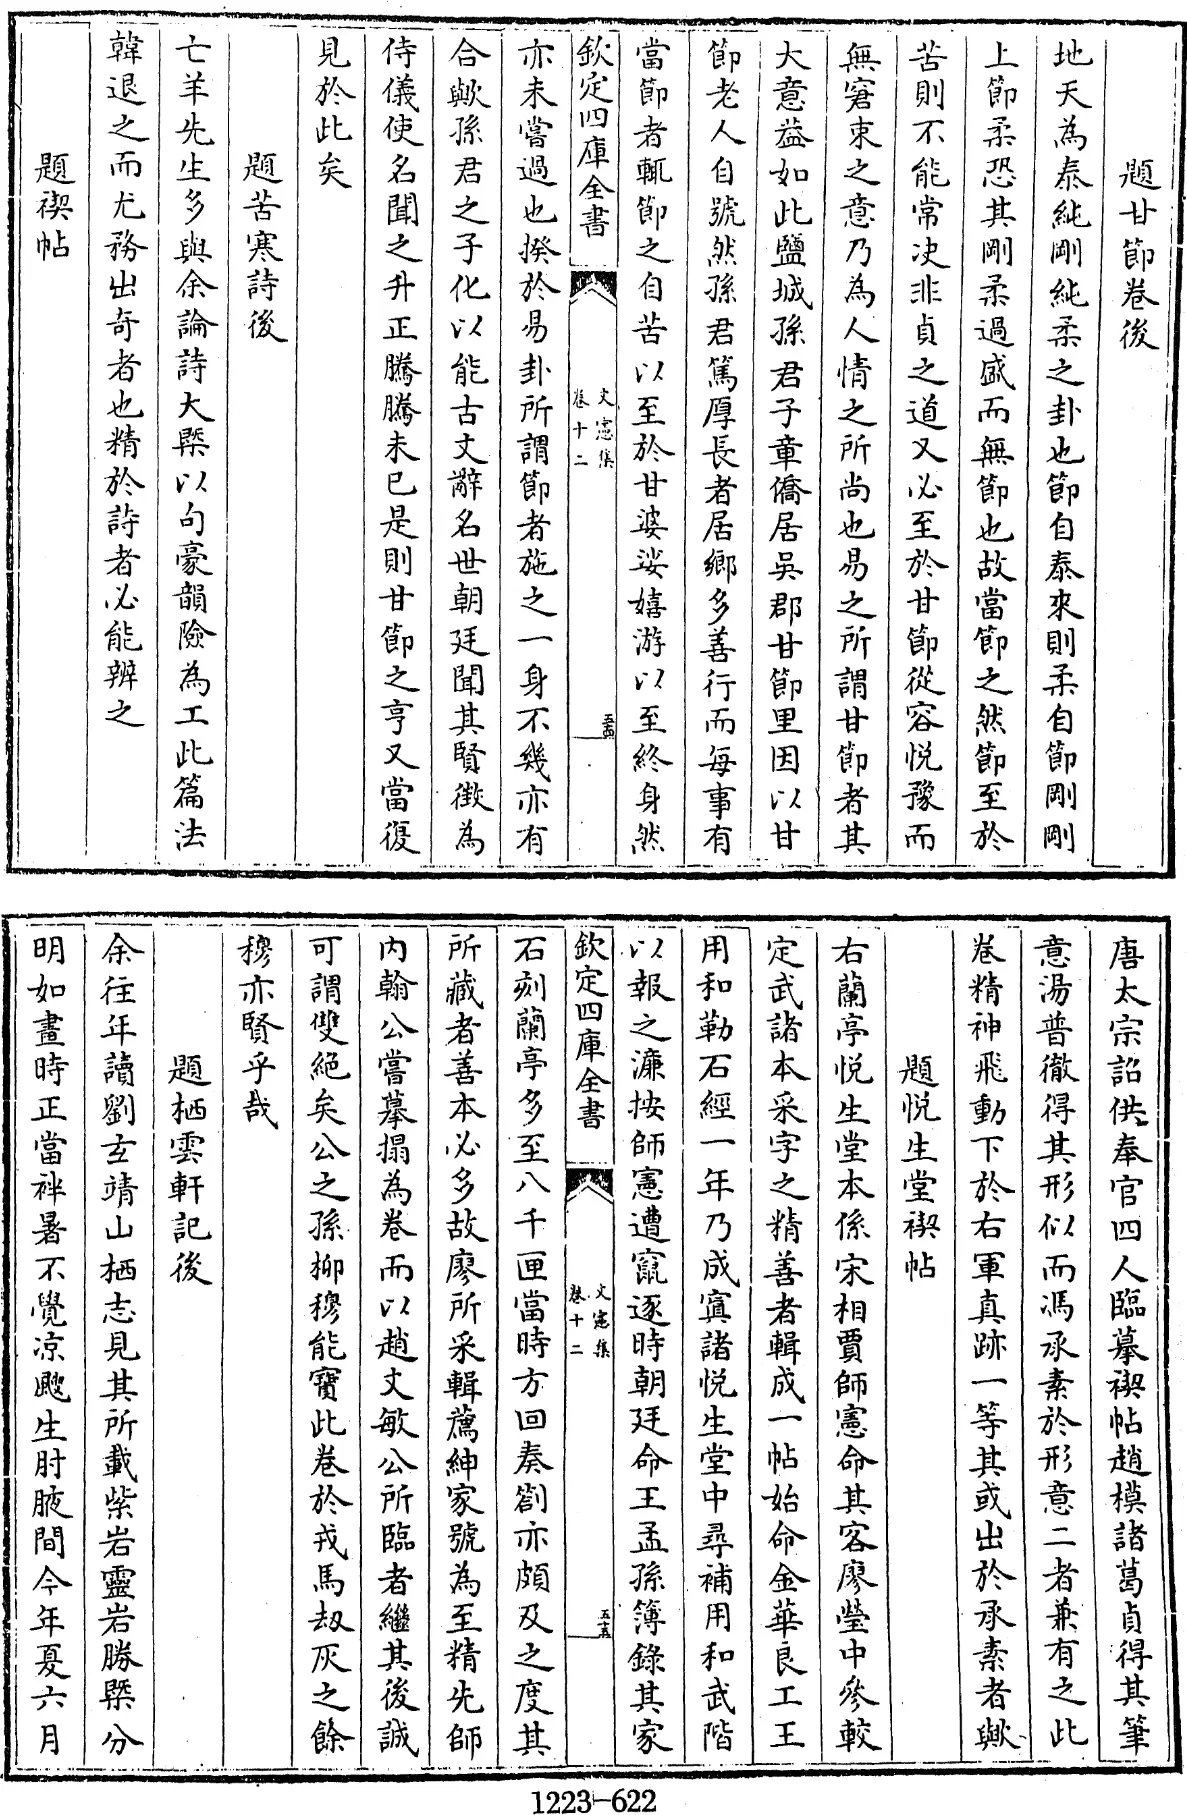 題甘節卷後
地天為泰純剛純柔之卦也節自泰來則柔自節剛剛
上節柔恐其剛柔過盛而無節也故當節之然節至於
苦則不能常决非貞之道又必至於甘節從容悦豫而
無窘束之意乃為人情之所尚也易之所謂甘節者其
大意葢如此鹽城孫君子章僑居吳郡甘節里因以甘
節老人自號然孫君篤厚長者居鄉多善行而每事有
當節者輒節之自苦以至於甘婆娑嬉游以至終身然
欽定四庫全書
文憲集
卷十二
五十四
亦未嘗過也揆於易卦所謂節者施之一身不幾亦有
合歟孫君之子化以能古文辭名世朝廷聞其賢徴為
侍儀使名聞之升正騰騰未已是則甘節之亨又當復
見於此矣
題苦寒詩後
亡羊先生多與余論詩大槩以句豪韻險為工此篇法
韓退之而尤務出奇者也精於詩者必能辨之
題禊帖
唐太宗詔供奉官四人臨摹禊帖趙模諸葛貞得其筆
意湯普徹得其形似而馮承素於形意二者兼有之此
卷精神飛動下於右軍真跡一等其或出於承素者歟
題悦生堂禊帖
右蘭亭悦生堂本係宋相賈師憲命其客廖瑩中參較
定武諸本采字之精善者輯成一帖始命金華良工王
用和勒石經一年乃成寘諸悦生堂中尋補用和武階
以報之濂按師憲遭竄逐時朝廷命王孟孫簿錄其家
欽定四庫全書
文憲集
卷十二
五十五
石刻蘭亭多至八千匣當時方回奏劄亦頗及之度其
所藏者善本必多故廖所采輯薦紳家號為至精先師
内翰公嘗摹搨為卷而以趙文敏公所臨者繼其後誠
可謂雙絶矣公之孫柳穆能寶此卷於戎馬刼灰之餘
穆亦賢乎哉
題栖雲軒記後
余往年讀劉玄靖山栖志見其所載紫岩靈岩勝槩分
明如畫時正當袢暑不覺凉颸生肘腋間今年夏六月
1223-622